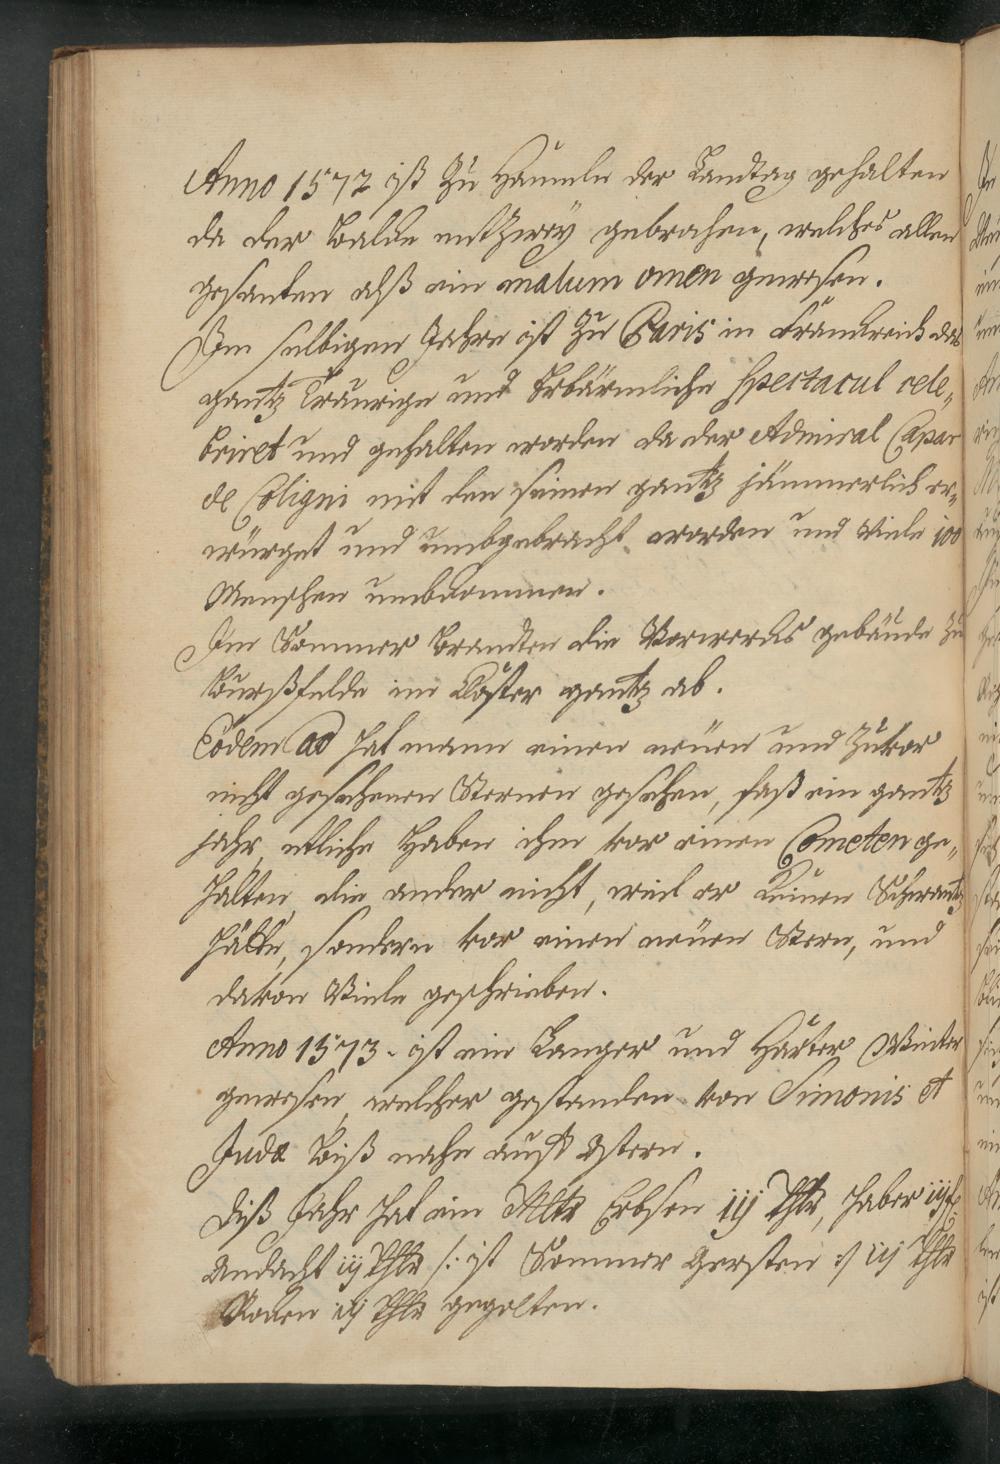 Anno 1572 ist Zu Hammeln der Landtag gehalten
da der Balcke entzwey gebrochen, welches allen
gesanten alß ein malum omen gewesen.
Im selbigen Jahre ist Zu Paris in Franckreich das
gantz Traurige und Erbärmliche Spectacul cele„
briret und gehalten worden da der Admiral Caspar
de Coligni mit den seinen gantz jämmerlich er„
würget und umbgebracht worden und Viele 100
Menschen umbkommen.
Im Sommer brandten die Vorwercks gebäude Zu
Burßfelde im Closter gantz ab.
Eodem ao hat mann einen neuen und Zuvor
nicht gesehenen Sternen gesehen, fast ein gantz
jahr, etliche Haben ihm vor einen Cometen ge„
halten, die ander nicht, weil er Keinen Schwantz
hätte, sondern vor einen neuen Stern, und
davon Viele geschrieben.
Anno 1573. ist ein Langer und Harter Winter
gewesen, welcher gestanden von Simonis et
Judæ biß nahe auff Ostern.
Diß Jahr hat ein Mltr Erbsen iij Thlr, Haber
iij Thlr /: ist Sommer Gersten :/ iij Thlr
Rocken iij Thlr gegolten.